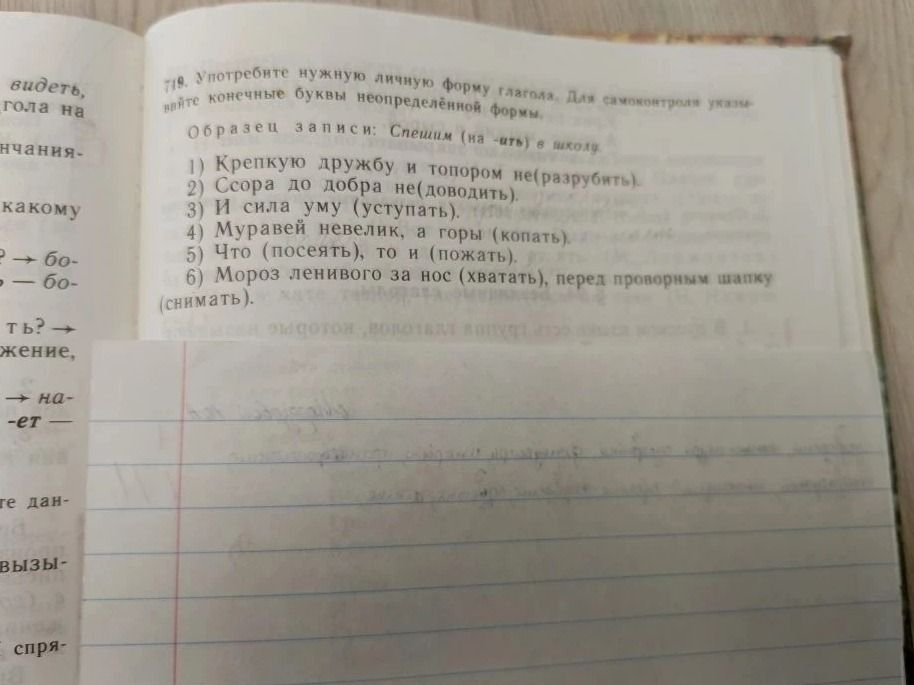 видеть,
гола на
нчания-
какому
? → бо-
— бо-
ть? →
жение,
→ на-
-ет —
те дан-
вызы-
спря-
719. Употребите нужную личную форму глагола. Для самоконтроля указы-
вайте конечные буквы неопределённой формы.
Образец записи: Спешим (на -ить) в школу.
1) Крепкую дружбу и топором не(разрубить).
2) Ссора до добра не(доводить).
3) И сила уму (уступать).
4) Муравей невелик, а горы (копать).
5) Что (посеять), то и (пожать).
6) Мороз ленивого за нос (хватать), перед проворным шапку
(снимать).